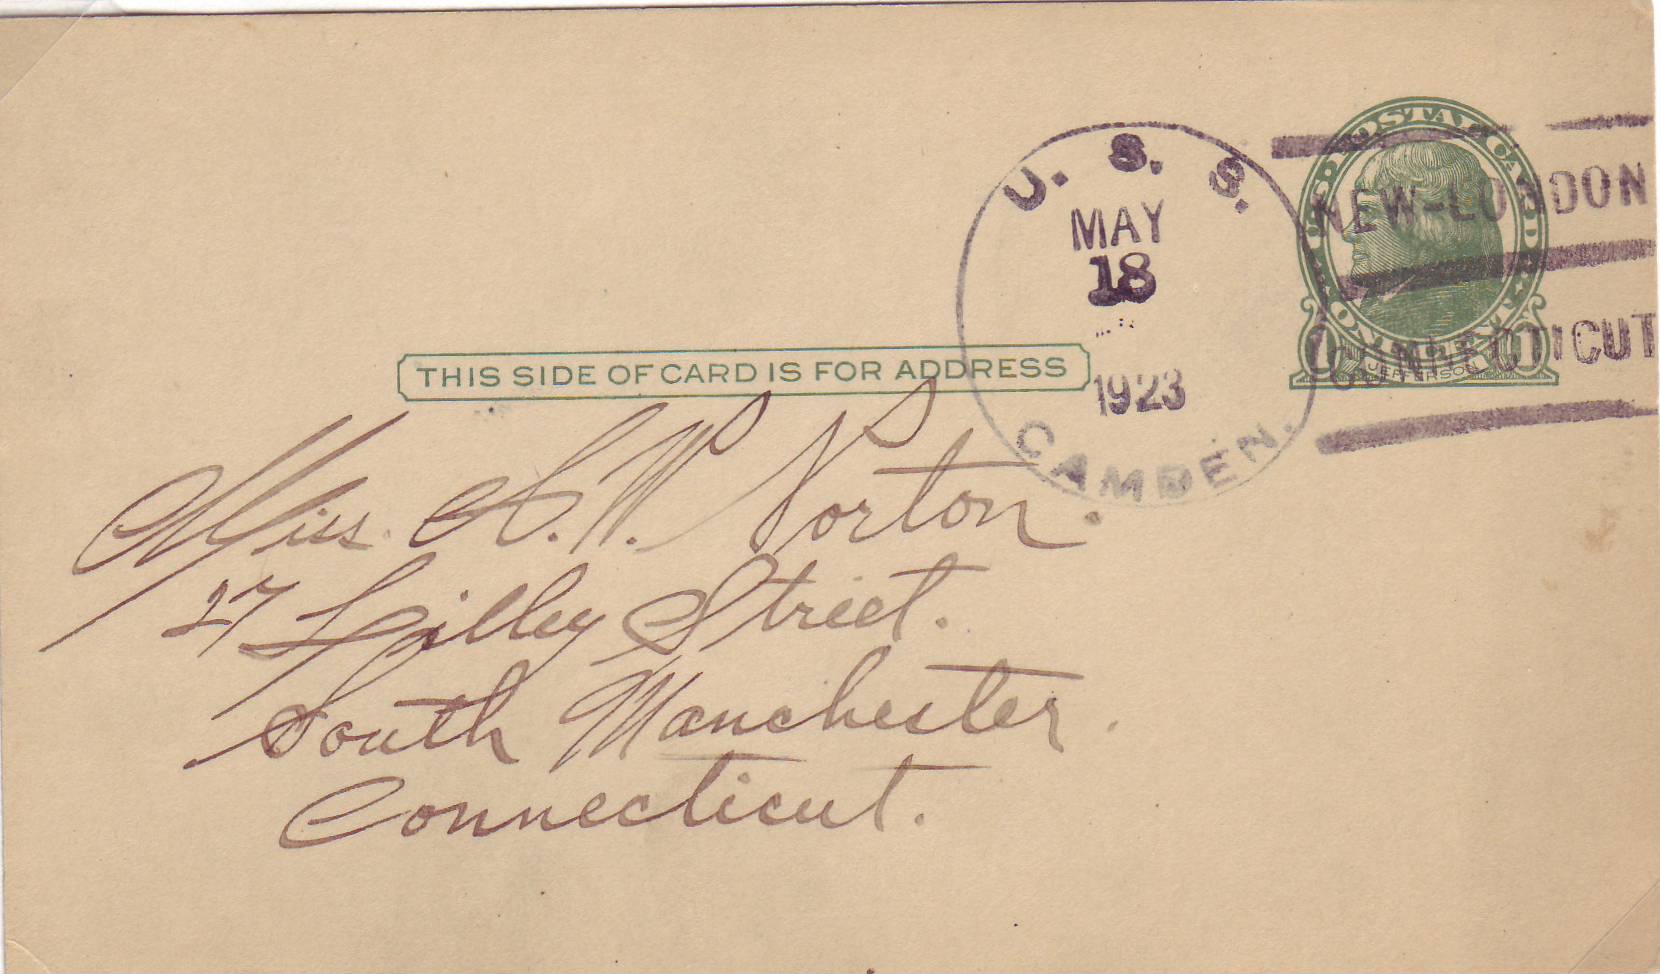 U.S. POSTAL CARD
U. S. S.
MAY
18
1923
CAMDEN.
NEW-LONDON
CONNECTICUT
ONE CENT
JEFFERSON
THIS SIDE OF CARD IS FOR ADDRESS
Miss. A. W. Norton.
27 Lilley Street.
South Manchester.
Connecticut.